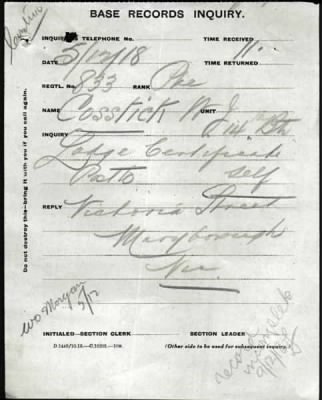 BASE RECORDS INQUIRY.
INQUIRY TELEPHONE No.
TIME RECEIVED
DATE 5/12/18
TIME RETURNED
REGTL. No. 833 RANK Pte
NAME Cosstick W J UNIT
INQUIRY
Lodge Certificate
Patts self
REPLY Victoria Street
Maryborough
Vic
Do not destroy this—bring it with you if you call again.
WO Morgan
5/12
INITIALED—SECTION CLERK
SECTION LEADER
(Other side to be used for subsequent inquiry.)
record
9/12/18